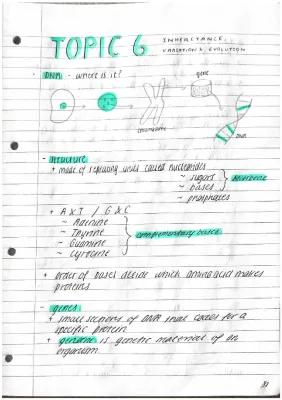 TOPIC 6
INHERITANCE,
VARIATION & EVOLUTION
- DNA - where is it?
gene
chromosome
DNA
- structure
+ made of repeating units called nucleotides
~ sugars
~ bases
~ phosphates
backbone
+ A & T / G & C
~ Adenine
~ Thymine
~ Guanine
~ Cytosine
complementary bases
+ order of bases decide which amino acid makes
proteins
- genes
+ small sections of DNA that codes for a
specific protein
+ genome is genetic material of an
organism